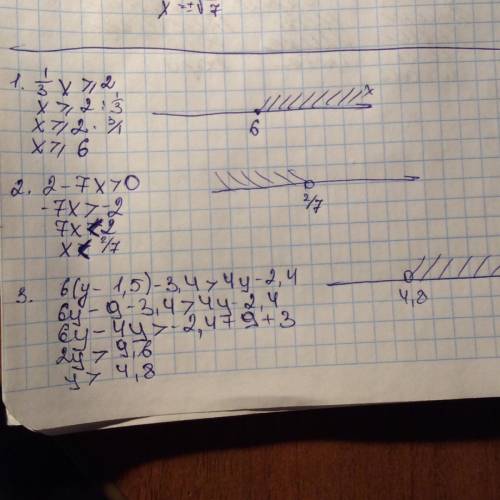 x = ±√7
1. 1/3 x ⩾ 2
x ⩾ 2 : 1/3
x ⩾ 2 · 3/1
x ⩾ 6
6
x
2. 2 - 7x > 0
-7x > -2
7x < 2
x < 2/7
2/7
3. 6(y - 1,5) - 3,4 > 4y - 2,4
6y - 9 - 3,4 > 4y - 2,4
6y - 4y > -2,4 + 9 + 3
2y > 9,6
y > 4,8
4,8